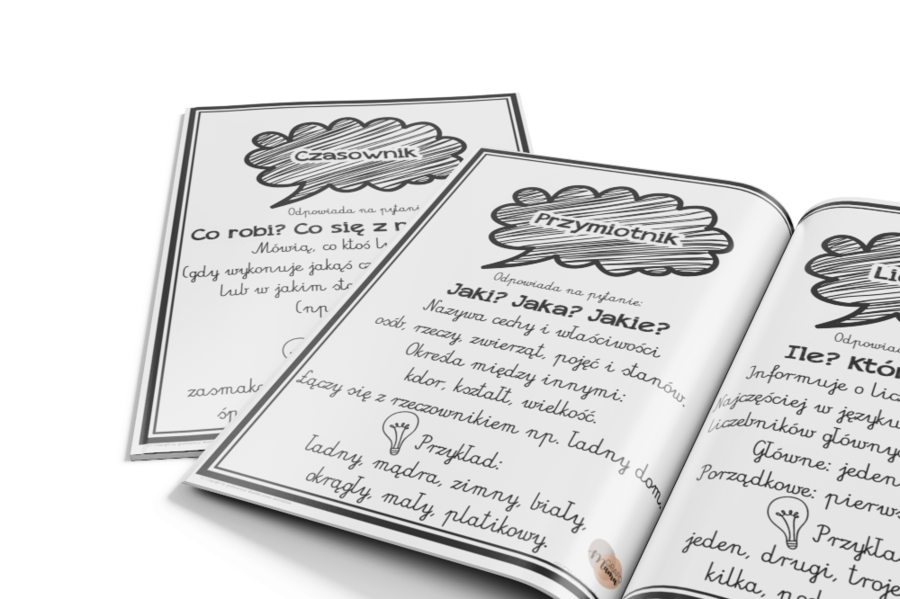 Czasownik
Odpowiada na pytani
Co robi? Co się z r
Mówią, co ktoś
(gdy wykonuje jakąś cz
lub w jakim sta
(np.
zasmako
śp
Przymiotnik
Odpowiada na pytanie:
Jaki? Jaka? Jakie?
Nazywa cechy i właściwości
osób, rzeczy, zwierząt, pojęć i stanów.
Określa między innymi:
kolor, kształt, wielkość.
Łączy się z rzeczownikiem np. ładny dom.
Przykład:
ładny, mądra, zimny, biały,
okrągły, mały, platikowy.
Lic
Odpowiad
Ile? Któr
Informuje o licz
Najczęściej w języku
liczebników główny
Główne: jeden
Porządkowe: pierws
Przykła
jeden, drugi, troje
kilka,